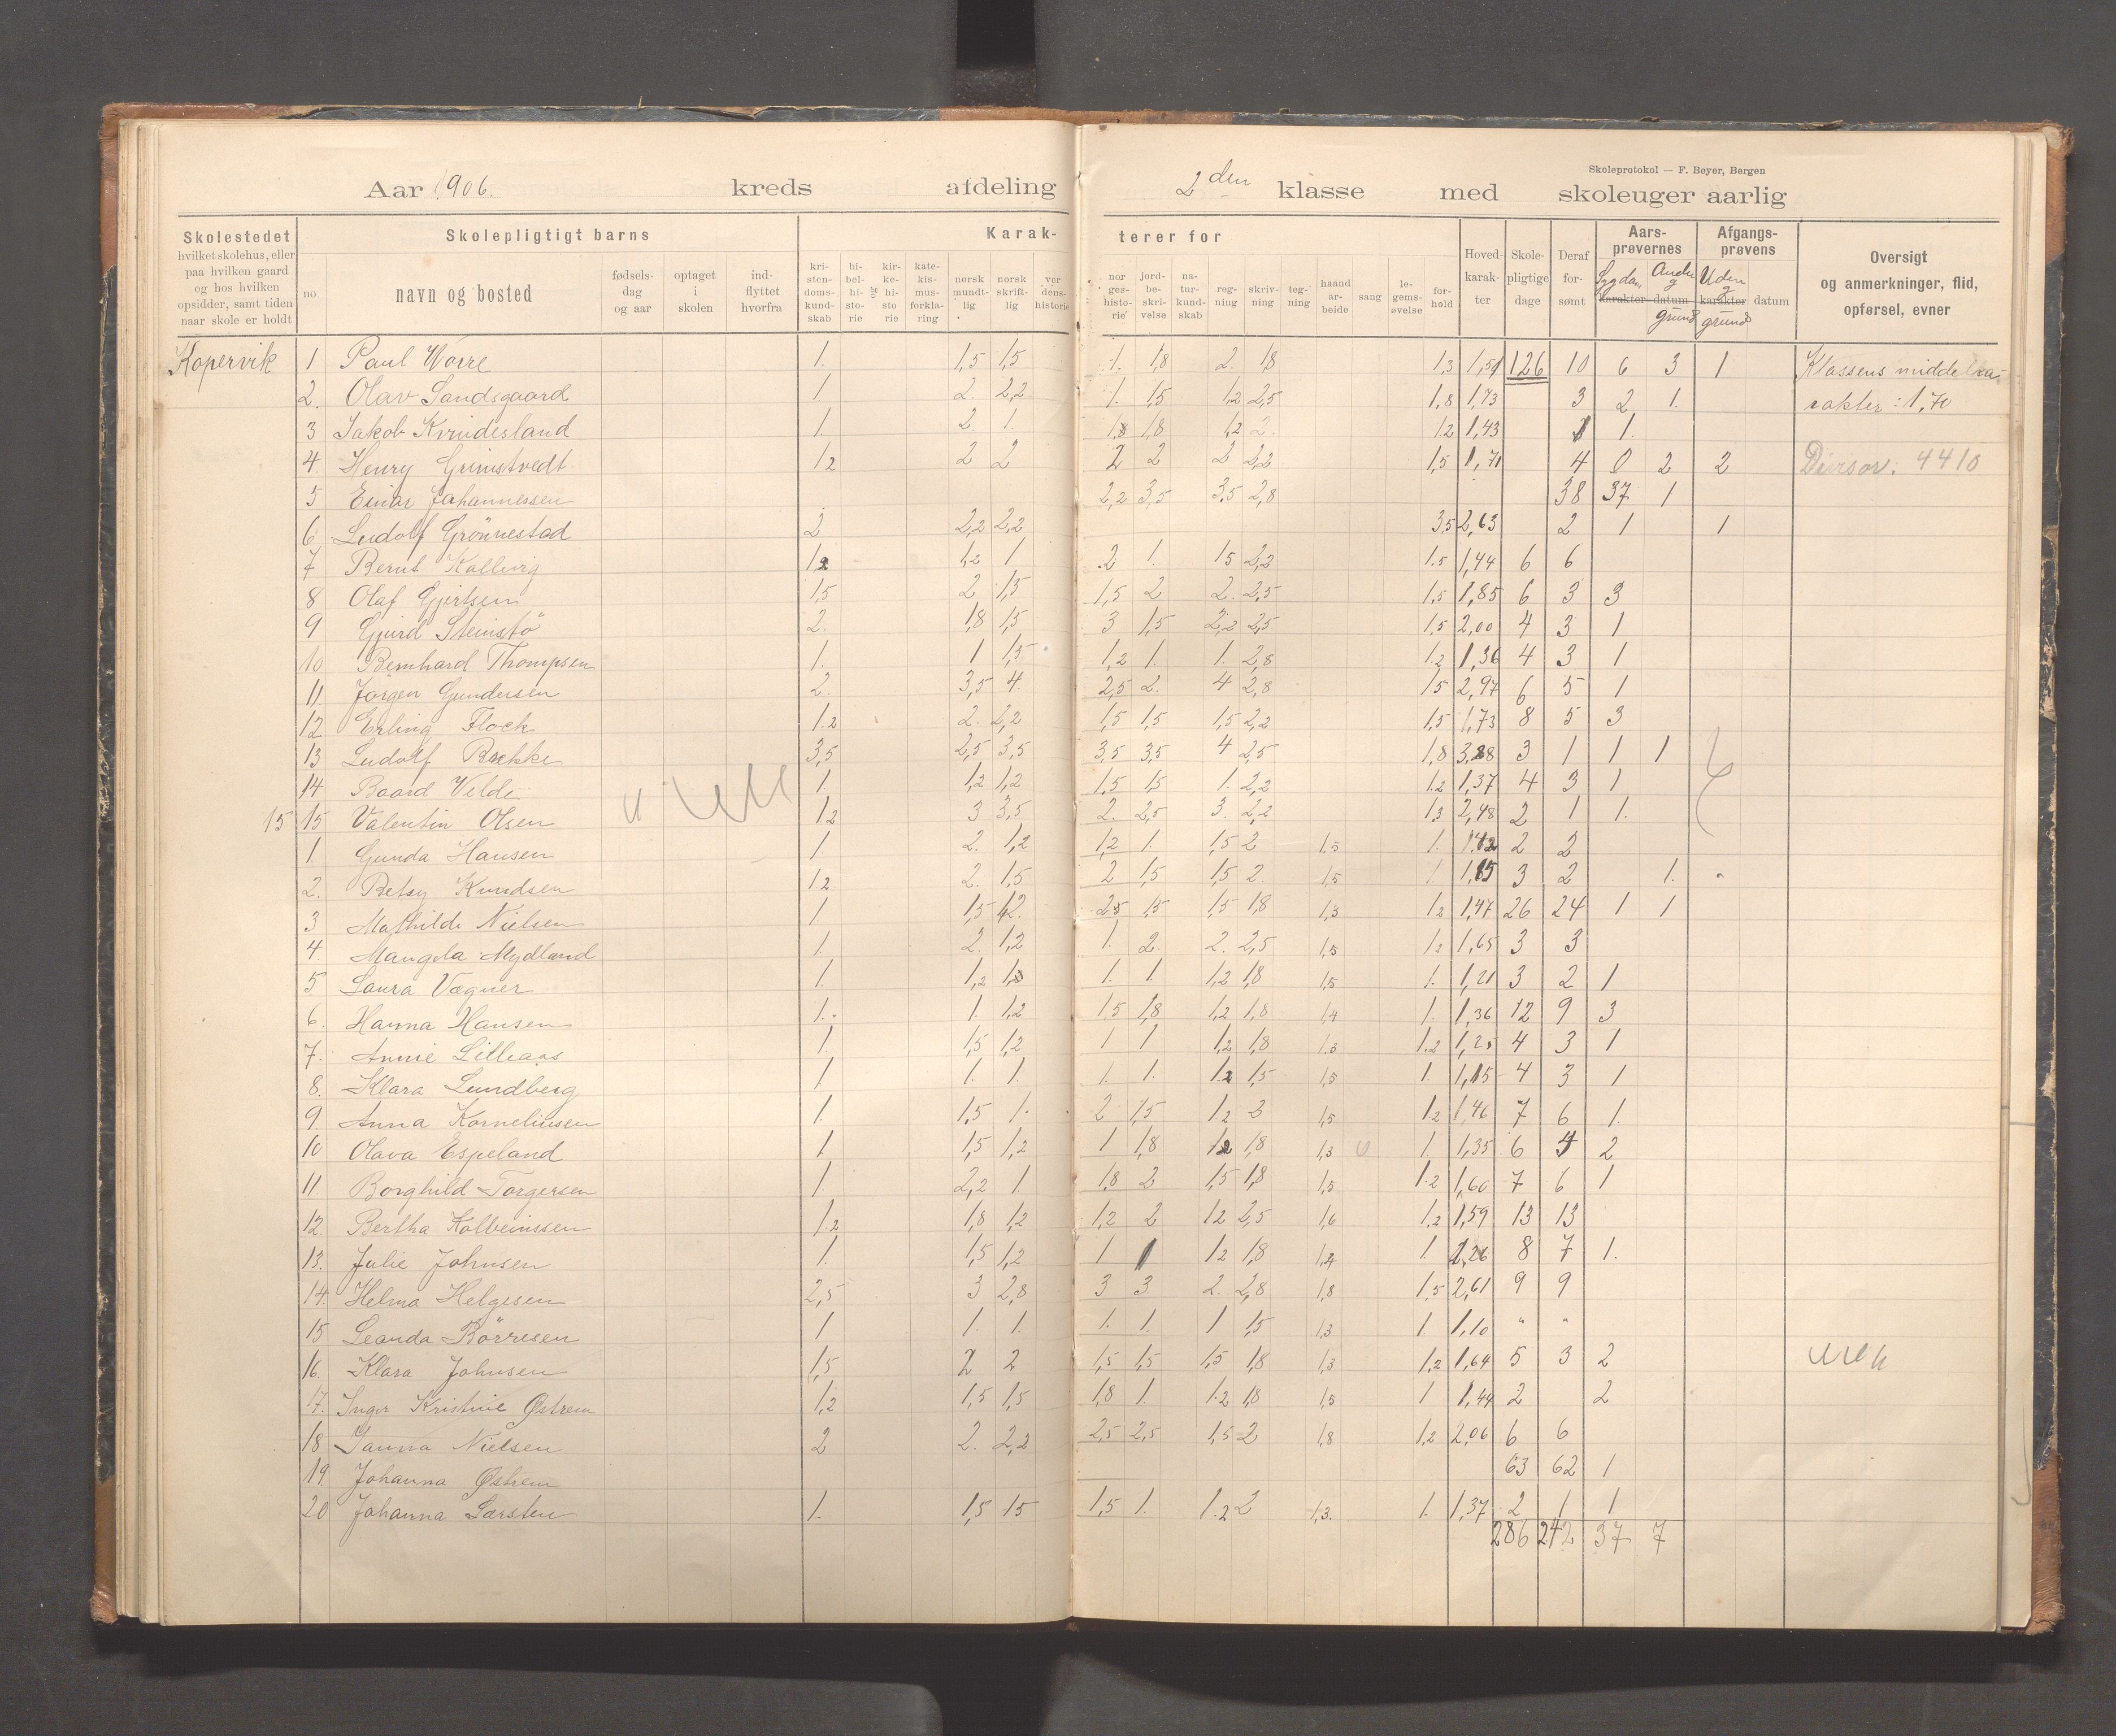 Skoleprotokol — F. Beyer, Bergen
Aar 1906. kreds afdeling 2den klasse med skoleuger aarlig
Skolestedet hvilket skolehus, eller paa hvilken gaard og hos hvilken opsidder, samt tiden naar skole er holdt
Skolepligtigt barns
no
navn og bosted
fødsels-dag og aar
optaget i skolen
ind-flyttet hvorfra
Karak-terer for
kri-sten-doms-kund-skab
bi-bel-hi-sto-rie
og
kir-ke-hi-sto-rie
kate-kis-mus-forkla-ring
norsk mundt-lig
norsk skrift-lig
ver dens-historie
nor ges-histo-rie
jord-be-skri-velse
na-tur-kund-skab
reg-ning
skriv-ning
teg-ning
haand ar-beide
sang
le-gems-øvelse
for-hold
Hoved-karak-ter
Skole-pligtige dage
Deraf for-sømt
Aars-prøvernes
karakter datum
Sygdom
Anden g grund
Afgangs-prøvens
karakter datum
Uden g grund
Oversigt og anmerkninger, flid, opførsel, evner
Kopervik 1 Paul Worre 1. 1,5 1,5 1. 1,8 2. 1,8 1,3 1,59 126 10 6 3 1 Klassens middelka-
2. Olav Sandsgaard 1 2. 2,2 1. 1,5 1,2 2,5 1,8 1,73 3 2 1. rakter: 1,70
3 Jakob Kvindesland 1. 2 1. 1,8 1,8 1,2 2. 1,2 1,43 1 1.
4. Henry Grimstvedt 1,2 2 2 2 2 2 2,2 1,5 1,71 4 0 2 2 Divisor: 4410
5 Einar Johannessen 2,2 3,5 3,5 2,8 38 37 1
6. Ludolf Grönnestad 2 2,2 2,2 3,5 2,63 2 1 1
7 Bernt Kallevig 1,2 1,2 1 2 1. 1,5 2,2 1.5 1,44 6 6
8 Olaf Gjertsen 1,5 2 1,5 1,5 2 2. 2,5 1,5 1,85 6 3 3
9 Gjurd Steinstö 2. 1,8 1,5 3 1,5 2,2 2,5 1,5 2,00 4 3 1
10 Bernhard Thompsen 1. 1 1,5 1,2 1. 1. 2,8 1.2 1,36 4 3 1
11. Jörgen Gundersen 2. 3,5 4. 2,5 2. 4 2,8 1,5 2,97 6 5 1
12. Erling Flock 1.2 2. 2,2 1,5 1,5 1,5 2,2 1,5 1,73 8 5 3
13 Ludolf Brekke 3,5 2,5 3,5 3,5 3,5 4 2,5 1,8 3,28 3 1 1 1
14 Baard Velde 1. 1,2 1,2 1,5 1,5 1. 2,2 1.2 1,37 4 3 1
15 15 Valentin Olsen 1,2 3 3,5 2. 2,5 3. 2,2 1,3 2,48 2 1 1.
1 Gunda Hansen 1 2. 1,2 1,2 1. 1,5 2 1.5 1. 1,42 2 2
2. Betsy Knudsen 1.2 2. 1,5 2 1,5 1,5 2. 1,5 1. 1,65 3 2 1.
3 Mathilde Nielsen 1 1,5 1,2. 2,5 1,5 1,5 1,8 1,3 1,2 1,47 26 24 1 1
4. Mangela Mydland 1. 2. 1,2 1. 2. 2. 2,5 1,5 1.2 1,65 3 3
5 Laura Vægner 1. 1,2 1,8 1. 1 1,2 1,8 1,5 1. 1,21 3 2 1
6. Hanna Hansen 1. 1. 1,2 1,5 1,8 1,2 1,8 1,4 1. 1,36 12 9 3
7. Annie Lilleaas 1 1,5 1,2 1 1 1,2 1,8 1.3 1.2 1,25 4 3 1
8. Klara Lundberg 1 1. 1. 1. 1. 1.2 1,5 1,5 1. 1,15 4 3 1
9. Anna Korneliusen 1. 1,5 1. 2 1,5 1,2 3 1,5 1,2 1,46 7 6 1.
10 Olava Espeland 1 1,5 1,2 1 1,8 1,2 1,8 1,3 1 1,35 6 4 2
11. Borghild Torgersen 1. 2,2 1. 1,8 2 1,5 1,8 1,5 1.2 1,60 7 6 1
12. Bertha Kolbeinssen 1.2 1,8 1,2 1,2 2 1,2 2,5 1,6 1,2 1,59 13 13
13. Julie Johnsen 1. 1,5 1,2 1 1 1,2 1,8 1,4 1. 1,26 8 7 1.
14. Helma Helgesen 2,5 3 2,8 3 3 2. 2,8 1,8 1,5 2,61 9 9
15 Leanda Börresen 1 1. 1. 1. 1. 1 1,5 1,3 1 1,10 " "
16. Klara Johnsen 1,5 2 2 1,5 1,5 1,5 1,8 1,3 1,2 1,64 5 3 2
17. Inger Kristine Østrem 1,2 1,5 1,5 1,8 1. 1.2 1,8 1,5 1 1,44 2 2
18 Janna Nielsen 2 2. 2,2 2,5 2,5 1,5 2 1,8 1,2 2,06 6 6
19. Johanna Østrem 63 62 1
20 Johanna Larsten 1. 1,5 1,5 1,5 1. 1.2 2 1,3. 1. 1,37 2 1 1
286 242 37 7